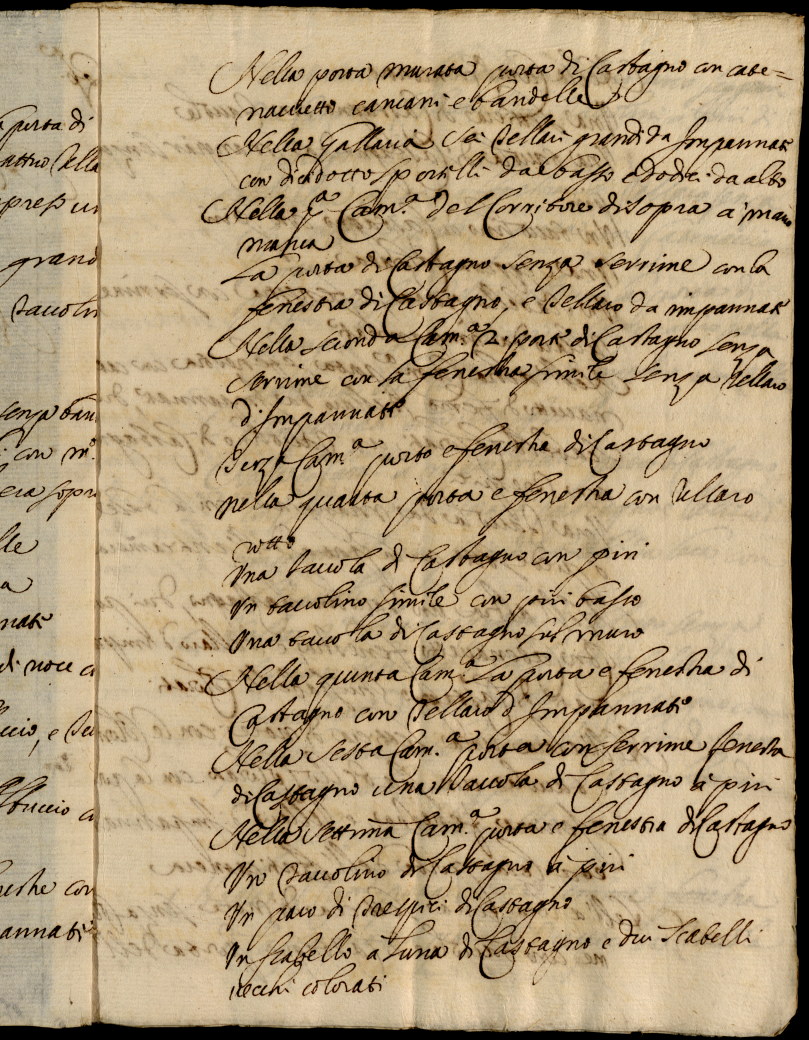 a porta di
attro Tella
presso un
grand
Tavolin
senza ban
con m.
era sopra
lle
a
nate
di noce c
uccio, e
lbuccio c
nestre con
annati
Nella porta murata porta di Castagno con cate=
nacietto cancani e bandelle
Nella Gallaria sei Tellari grandi da Impannate
con dicidotto sportelli da basso e dodici da alto
Nella p.a Cam.a del Corritore di sopra a mano
manca
La porta di Castagno senza serrime con la
fenestra di Castagno, e Tellaro da impannate
Nella seconda Cam.a 2 porte di Castagno senza
serrime con la fenestra simile senza Tellaro
d'Impannate
Terza Cam.a porta e fenestra di Castagno
nella quarta porta e fenestra con tellaro
rotto
Una Tavola di Castagno con piri
Un tavolino simile con piri basso
Una tavola di Castagno sul muro
Nella quinta Cam.a La porta e fenestra di
Castagno con Tellaro d'Impannate
Nella Sesta Cam.a porta con serrime fenestra
di Castagno una Tavola di Castagno a piri
Nella Settima Cam.a porta e fenestra di Castagno
Un Tavolino di Castagno a piri
Un paro di Trespiti di Castagno
Un scabello a Luna di Castagno e dui Scabelli
vecchi colorati